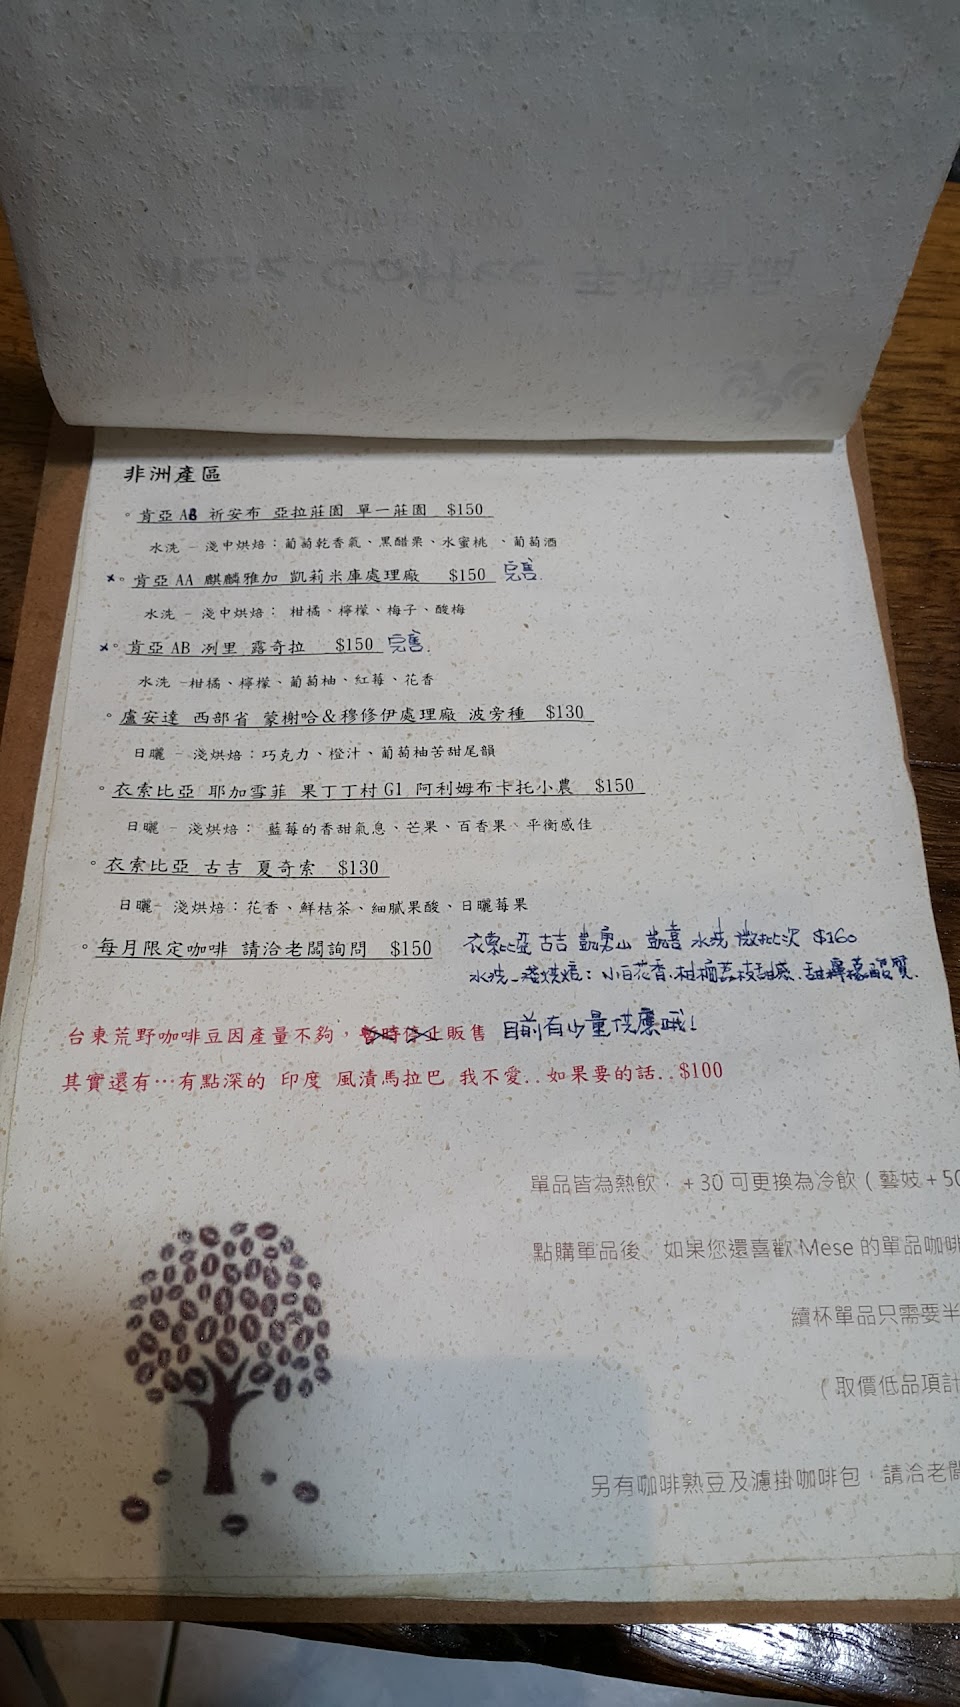 非洲產區
。肯亞 AB 祈安布 亞拉莊園 單一莊園 $150
水洗 – 淺中烘焙：葡萄乾香氣、黑醋栗、水蜜桃 、葡萄酒
x。肯亞 AA 麒麟雅加 凱莉米庫處理廠 $150 完售.
水洗 – 淺中烘焙： 柑橘、檸檬、梅子、酸梅
x。肯亞 AB 冽里 露奇拉 $150 完售.
水洗 –柑橘、檸檬、葡萄柚、紅莓、花香
。盧安達 西部省 蒙榭哈&穆修伊處理廠 波旁種 $130
日曬 – 淺烘焙：巧克力、橙汁、葡萄柚苦甜尾韻
。衣索比亞 耶加雪菲 果丁丁村 G1 阿利姆布卡托小農 $150
日曬 – 淺烘焙： 藍莓的香甜氣息、芒果、百香果、平衡感佳
。衣索比亞 古吉 夏奇索 $130
日曬– 淺烘焙：花香、鮮桔茶、細膩果酸、日曬莓果
。每月限定咖啡 請洽老闆詢問 $150 衣索比亞 古吉 水洗 微批次 $160
水洗–淺烘焙：小白花香.柑橘荔枝甜感.甜檸檬酸質.
台東荒野咖啡豆因產量不夠，暫時停止販售 目前有少量供應哦!
其實還有…有點深的 印度 風漬馬拉巴 我不愛..如果要的話..$100
單品皆為熱飲，+30 可更換為冷飲 ( 藝妓 + 50
點購單品後、如果您還喜歡 Mese 的單品咖啡
續杯單品只需要半
( 取價低品項計
另有咖啡熟豆及濾掛咖啡包，請洽老闆